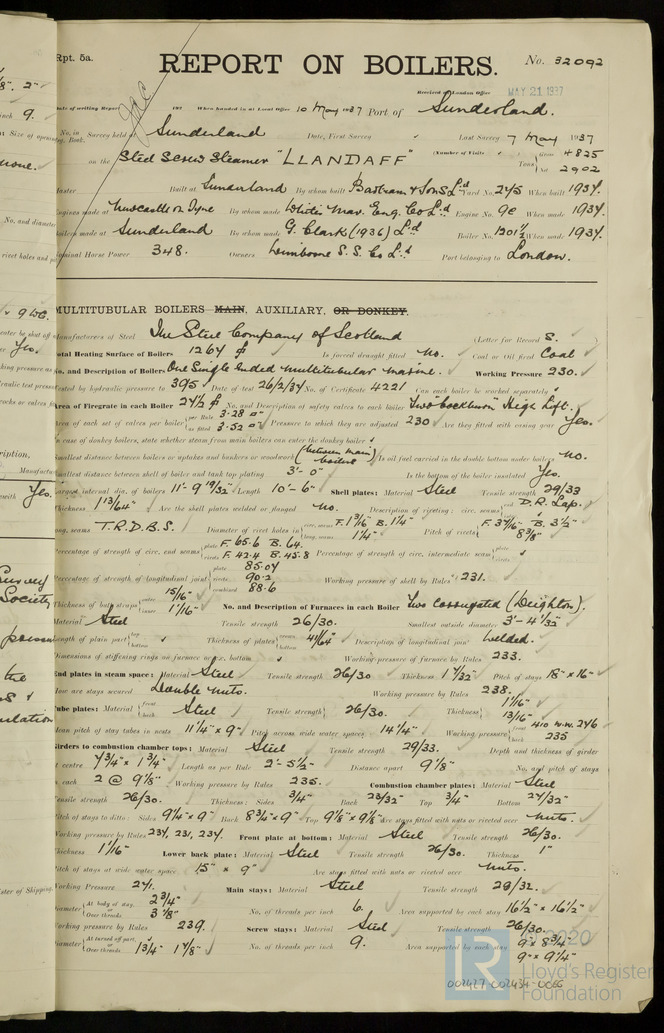 Rpt. 5a.
REPORT ON BOILERS.
No. 32092
Received at London Office MAY 21 1937
Date of writing Report 193 When handed in at Local Office 10 May 1937 Port of Sunderland.
No. in Reg. Book. Survey held at Sunderland Date, First Survey Last Survey 7 May 1937
on the Steel Screw Steamer "LLANDAFF" (Number of Visits) Tons Gross 4825 Net 2902
Master Built at Sunderland By whom built Bartram & Sons Ld Yard No. 245 When built 1937.
Engines made at Newcastle on Tyne By whom made Whites Mar. Eng. Co Ld Engine No. 9e When made 1937.
Boilers made at Sunderland By whom made G. Clark (1936) Ld Boiler No. 1301½ When made 1937.
Nominal Horse Power 348. Owners Wimborne S. S. Co Ld Port belonging to London.
MULTITUBULAR BOILERS MAIN, AUXILIARY, OR DONKEY.
Manufacturers of Steel The Steel Company of Scotland (Letter for Record S.
Total Heating Surface of Boilers 1264 Is forced draught fitted No. Coal or Oil fired Coal
No. and Description of Boilers One Single Ended Multitubular Marine. Working Pressure 230.
Tested by hydraulic pressure to 395 Date of test 26/2/37 No. of Certificate 4221 Can each boiler be worked separately
Area of Firegrate in each Boiler 24½ No. and Description of safety valves to each boiler Two "Cockburn" High Lift.
Area of each set of valves per boiler per Rule 3.28 as fitted 3.52 Pressure to which they are adjusted 230 Are they fitted with easing gear Yes.
In case of donkey boilers, state whether steam from main boilers can enter the donkey boiler
Smallest distance between boilers or uptakes and bunkers or woodwork (between main boilers) Is oil fuel carried in the double bottom under boilers No.
Smallest distance between shell of boiler and tank top plating 3'-0" Is the bottom of the boiler insulated Yes.
Largest internal dia. of boilers 11'-9 19/32" Length 10'-6" Shell plates: Material Steel Tensile strength 29/33
Thickness 1 13/64" Are the shell plates welded or flanged No. Description of riveting: circ. seams end D.R. Lap.
long. seams T.R.D.B.S. Diameter of rivet holes in circ. seams F. 1 3/16" B. 1¼" long. seams 1¼" Pitch of rivets F. 3 7/16" B. 3½" 8 3/8"
Percentage of strength of circ. end seams plate F. 65.6 B. 64. rivets F. 42.4 B. 45.8 Percentage of strength of circ. intermediate seam plate rivets
Percentage of strength of longitudinal joint plate 85.07 rivets 90.2 combined 88.6 Working pressure of shell by Rules 231.
Thickness of butt straps outer 15/16" inner 1 1/16" No. and Description of Furnaces in each Boiler Two Corrugated (Deighton).
Material Steel Tensile strength 26/30. Smallest outside diameter 3'-4 1/32"
Length of plain part top bottom Thickness of plates crown bottom 41/64" Description of longitudinal joint Welded.
Dimensions of stiffening rings on furnace or c.c. bottom Working pressure of furnace by Rules 233.
End plates in steam space: Material Steel Tensile strength 26/30 Thickness 1 7/32" Pitch of stays 18" x 16"
How are stays secured Double nuts. Working pressure by Rules 238.
Tube plates: Material front back Steel Tensile strength 26/30. Thickness 1 1/16" 13/16"
Mean pitch of stay tubes in nests 11¼" x 9" Pitch across wide water spaces 14¼" Working pressure front 410 W.W. 246 back 235
Girders to combustion chamber tops: Material Steel Tensile strength 29/33. Depth and thickness of girder
at centre 7¾" x 1¾" Length as per Rule 2'-5½" Distance apart 9 1/8" No. and pitch of stays
in each 2 @ 9 1/8" Working pressure by Rules 235. Combustion chamber plates: Material Steel
Tensile strength 26/30. Thickness: Sides ¾" Back 23/32" Top ¾" Bottom 27/32"
Pitch of stays to ditto: Sides 9¼" x 9" Back 8¾" x 9" Top 9 1/8" x 9 1/8" Are stays fitted with nuts or riveted over Nuts.
Working pressure by Rules 234, 231, 234. Front plate at bottom: Material Steel Tensile strength 26/30.
Thickness 1 1/16" Lower back plate: Material Steel Tensile strength 26/30. Thickness 1"
Pitch of stays at wide water space 15" x 9" Are stays fitted with nuts or riveted over Nuts.
Working Pressure 241. Main stays: Material Steel Tensile strength 28/32.
Diameter At body of stay, 2¾" Over threads 3 1/8" No. of threads per inch 6. Area supported by each stay 16½" x 16½"
Working pressure by Rules 239. Screw stays: Material Steel Tensile strength 26/30.
Diameter At turned off part, Over threads 1¾" 1 7/8" No. of threads per inch 9. Area supported by each stay 9" x 8¾" 9" x 9¼"
002427-002434-0066
© 2020
Lloyd's Register
Foundation